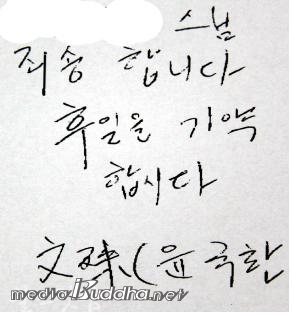 스님
죄송 합니다
후일을 기약
합시다
文珠(윤국환
mediaBuddha.net